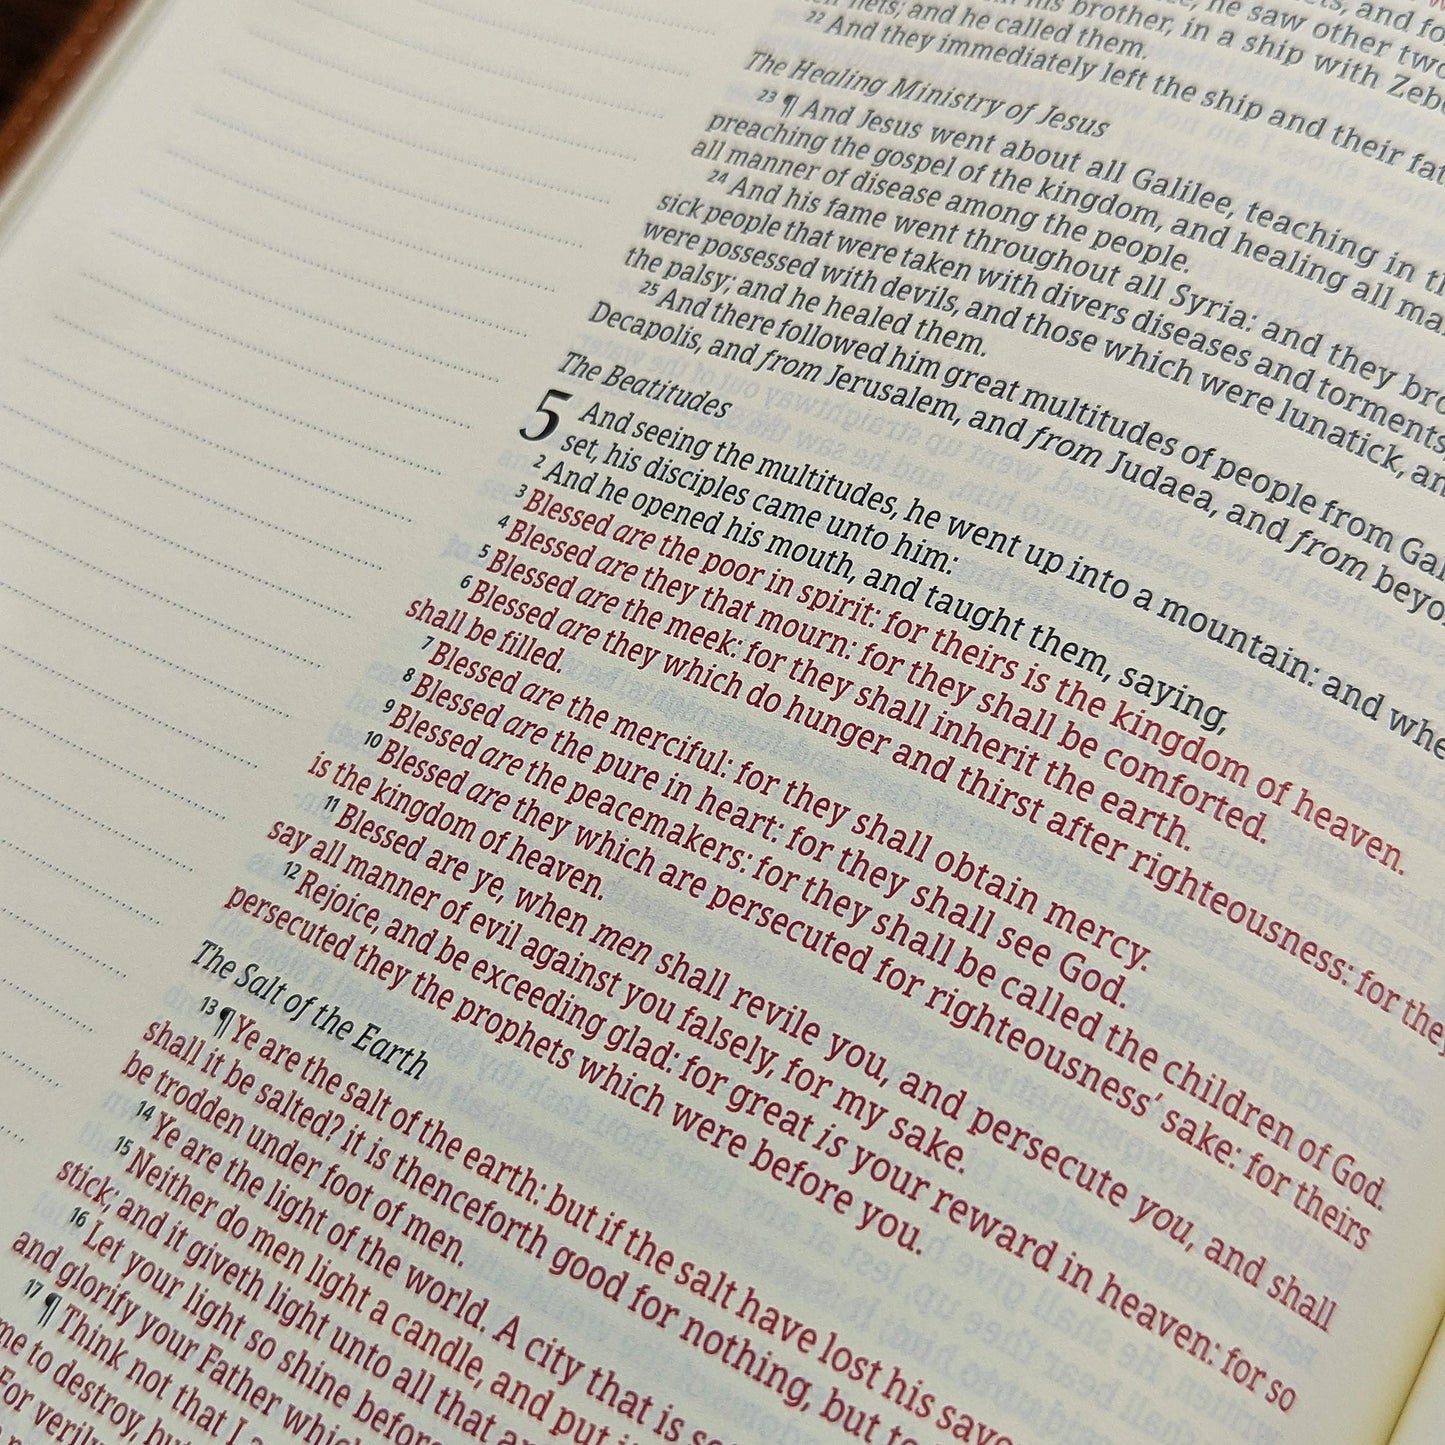 he saw other two
his brother, in a ship with Zeb
nets; and he called them.
22 And they immediately left the ship and their fat
The Healing Ministry of Jesus
23 ¶ And Jesus went about all Galilee, teaching in th
preaching the gospel of the kingdom, and healing all ma
all manner of disease among the people.
24 And his fame went throughout all Syria: and they bro
sick people that were taken with divers diseases and torments,
were possessed with devils, and those which were lunatick, an
the palsy; and he healed them.
25 And there followed him great multitudes of people from Gal
Decapolis, and from Jerusalem, and from Judaea, and from beyo
The Beatitudes
5 And seeing the multitudes, he went up into a mountain: and whe
set, his disciples came unto him:
2 And he opened his mouth, and taught them, saying,
3 Blessed are the poor in spirit: for theirs is the kingdom of heaven.
4 Blessed are they that mourn: for they shall be comforted.
5 Blessed are the meek: for they shall inherit the earth.
6 Blessed are they which do hunger and thirst after righteousness: for they
shall be filled.
7 Blessed are the merciful: for they shall obtain mercy.
8 Blessed are the pure in heart: for they shall see God.
9 Blessed are the peacemakers: for they shall be called the children of God.
10 Blessed are they which are persecuted for righteousness’ sake: for theirs
is the kingdom of heaven.
11 Blessed are ye, when men shall revile you, and persecute you, and shall
say all manner of evil against you falsely, for my sake.
12 Rejoice, and be exceeding glad: for great is your reward in heaven: for so
persecuted they the prophets which were before you.
The Salt of the Earth
13 ¶ Ye are the salt of the earth: but if the salt have lost his savo
shall it be salted? it is thenceforth good for nothing, but to
be trodden under foot of men.
14 Ye are the light of the world. A city that is se
15 Neither do men light a candle, and put i
stick; and it giveth light unto all that ar
16 Let your light so shine before
and glorify your Father which
17 ¶ Think not that I a
me to destroy, but
For verily